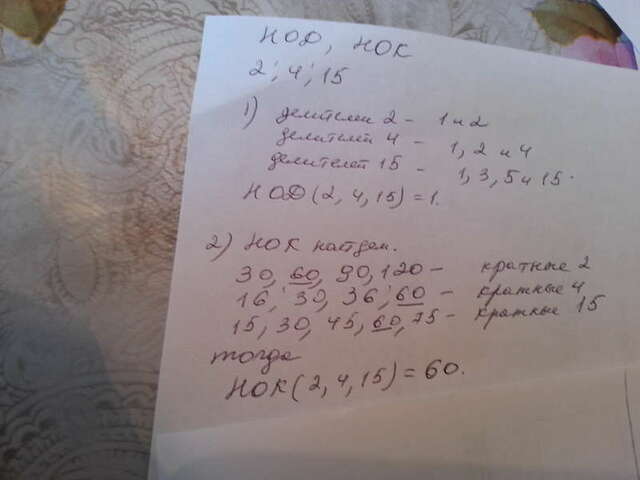 НОД, НОК
2; 4; 15
1) делители 2 - 1 и 2
делителей 4 - 1, 2 и 4
делителей 15 - 1, 3, 5 и 15.
НОД (2, 4, 15) = 1.
2) НОК найдем.
30, 60, 90, 120 - кратные 2
16, 30, 36, 60 - кратные 4
15, 30, 45, 60, 75 - кратные 15
тогда
НОК (2, 4, 15) = 60.